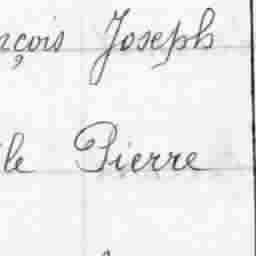 nçois Joseph
ile Pierre